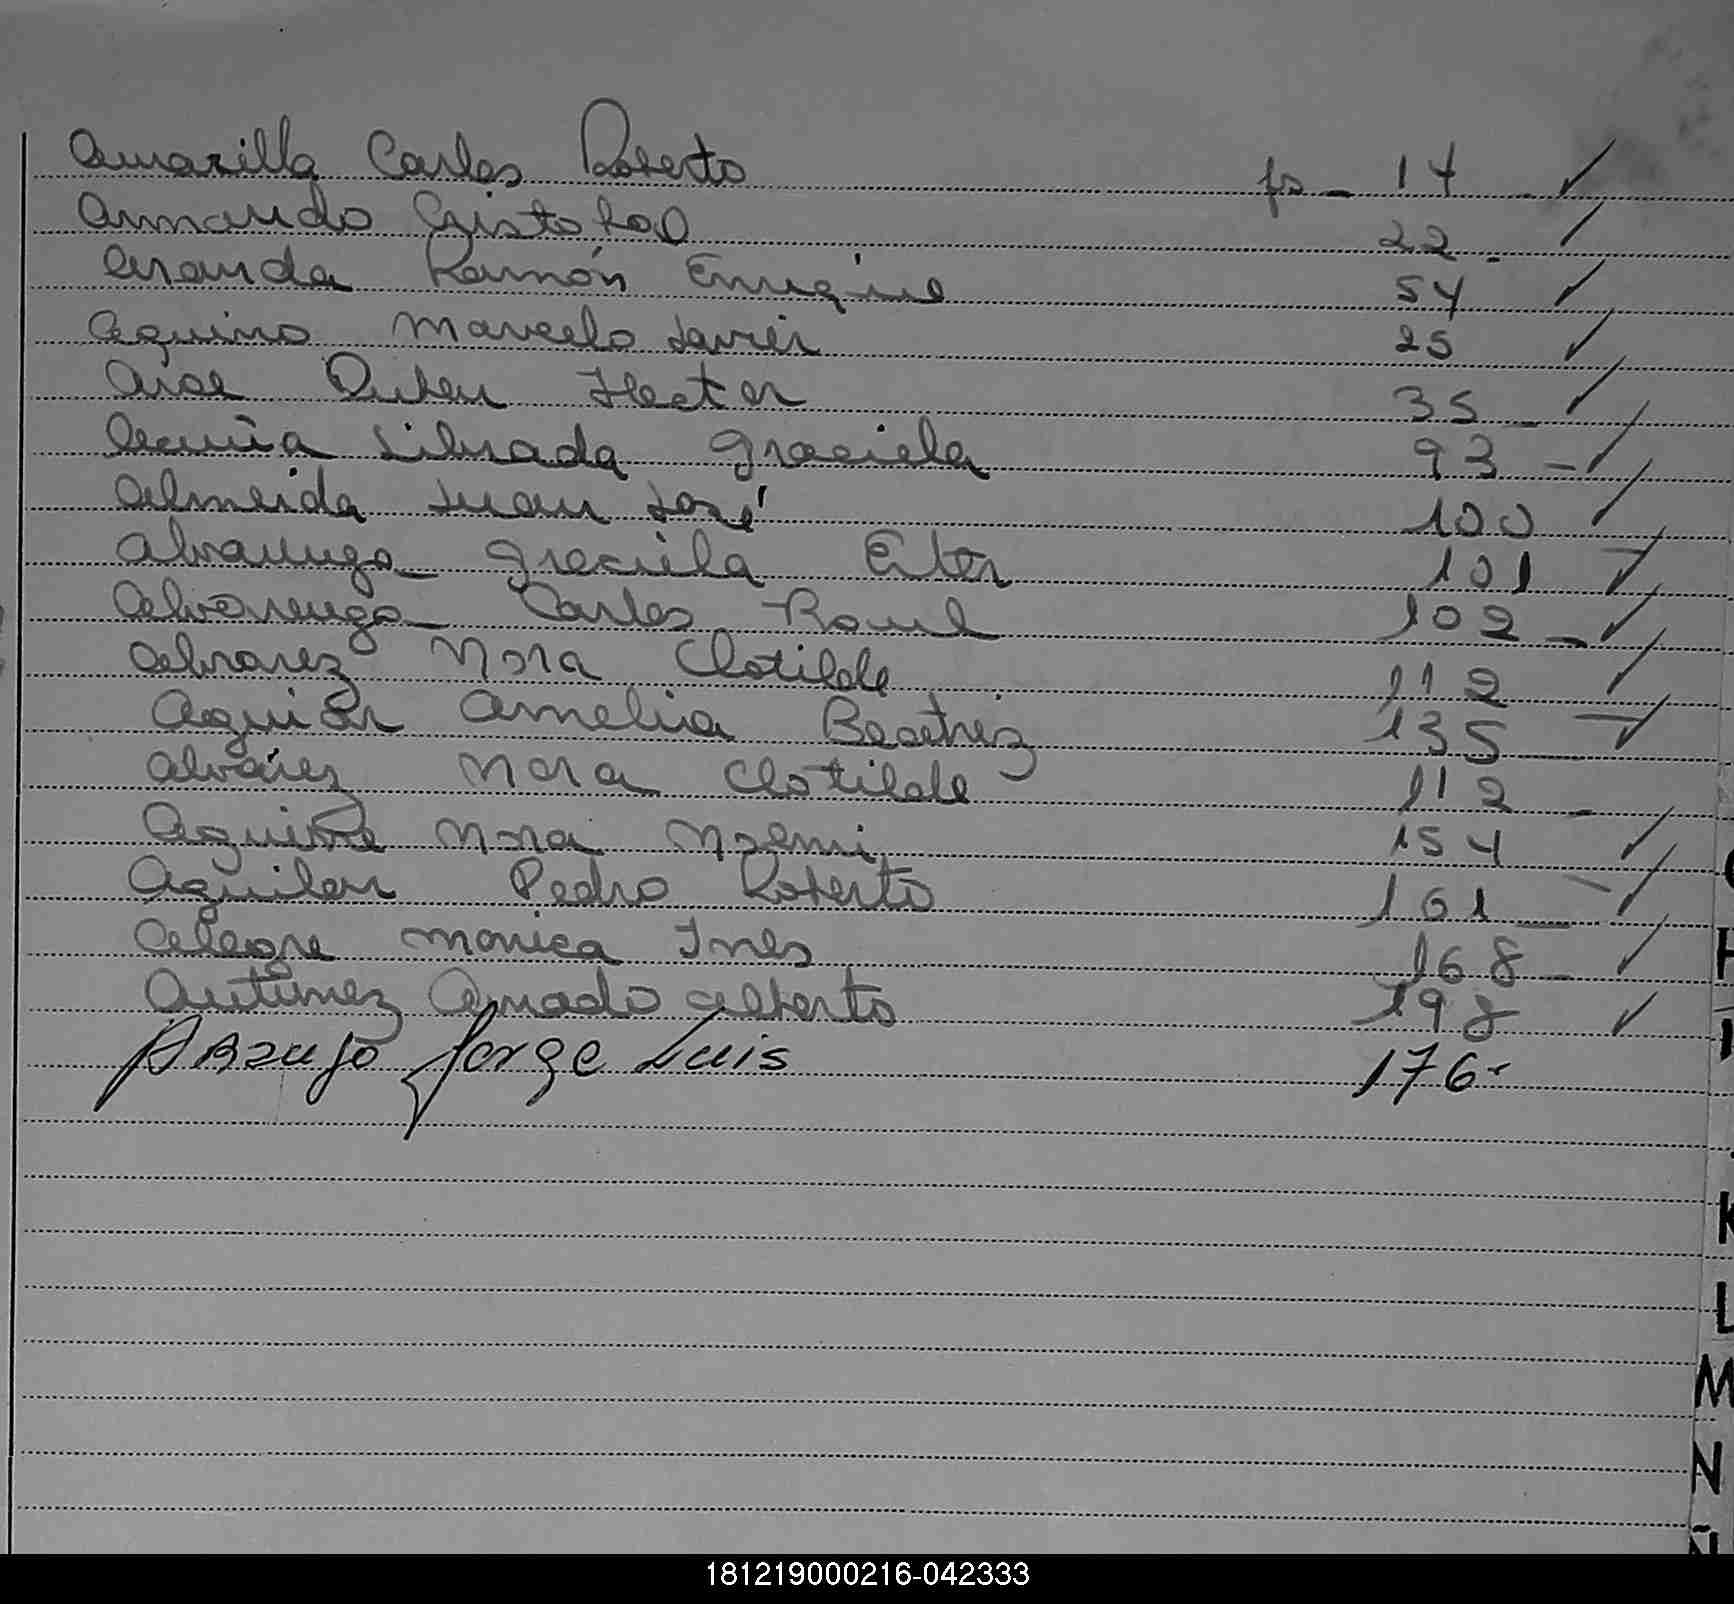 Amarilla Carlos Roberto fs - 14 ✓
Armando Cristobal 22 - ✓
Aranda Ramón Enrique 54 ✓
Aquino Marcelo Javier 25 ✓
Ruben Hector 35 - ✓
Acuña Librada Graciela 93 - ✓
Almeida Juan José 100 ✓
Alvarenga Graciela Ester 101 ✓
Alvarenga Carlos Raul 102 - ✓
Alvarez Nora Clotilde 112 ✓
Aguiar Amelia Beatriz 135 - ✓
Alvárez Nora Clotilde 112 -
Aguirre Nora Noemi 154 ✓
Aguilar Pedro Roberto 161 - ✓
Alegre Monica Ines 168 - ✓
Antunez Amado Alberto 198 ✓
Araujo Jorge Luis 176-
H
I
K
L
M
N
Ñ
181219000216-042333